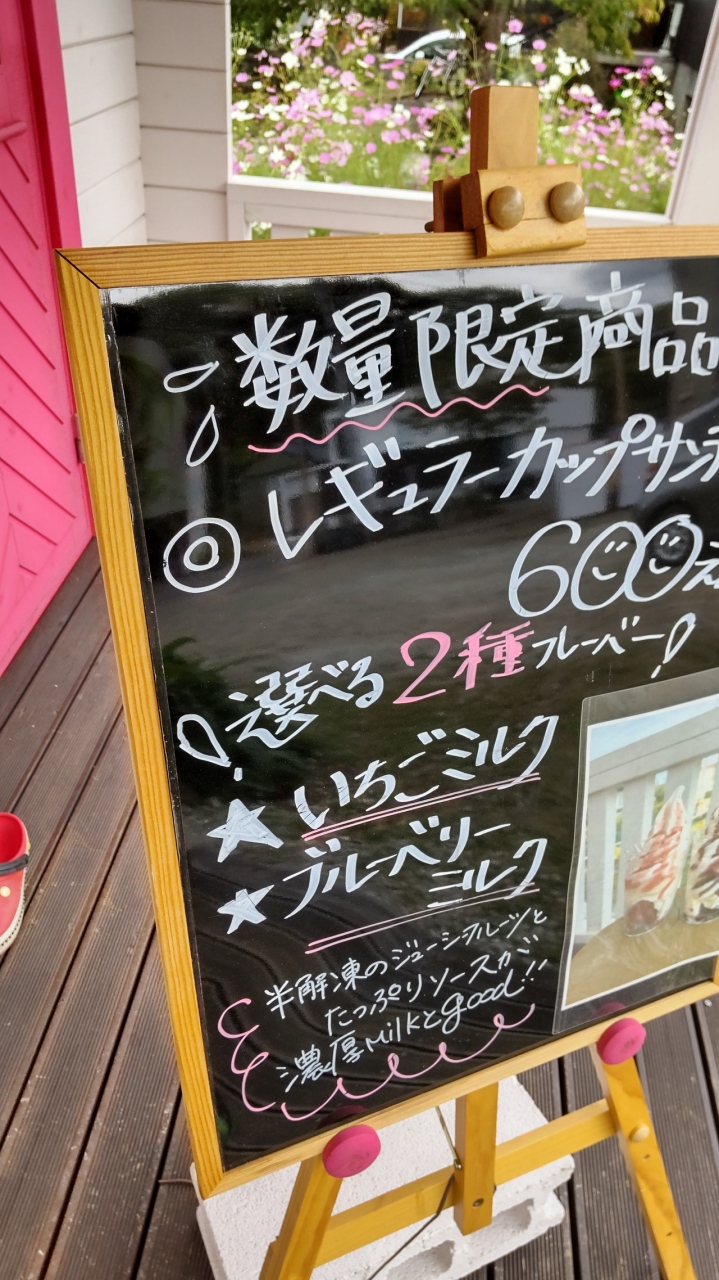 数量限定商品
◎レギュラーカップサンデ
600
選べる2種フレーバー!
★いちごミルク
★ブルーベリー
ミルク
半解凍のジューシーフルーツと
たっぷりソースが
濃厚Milkとgood!!